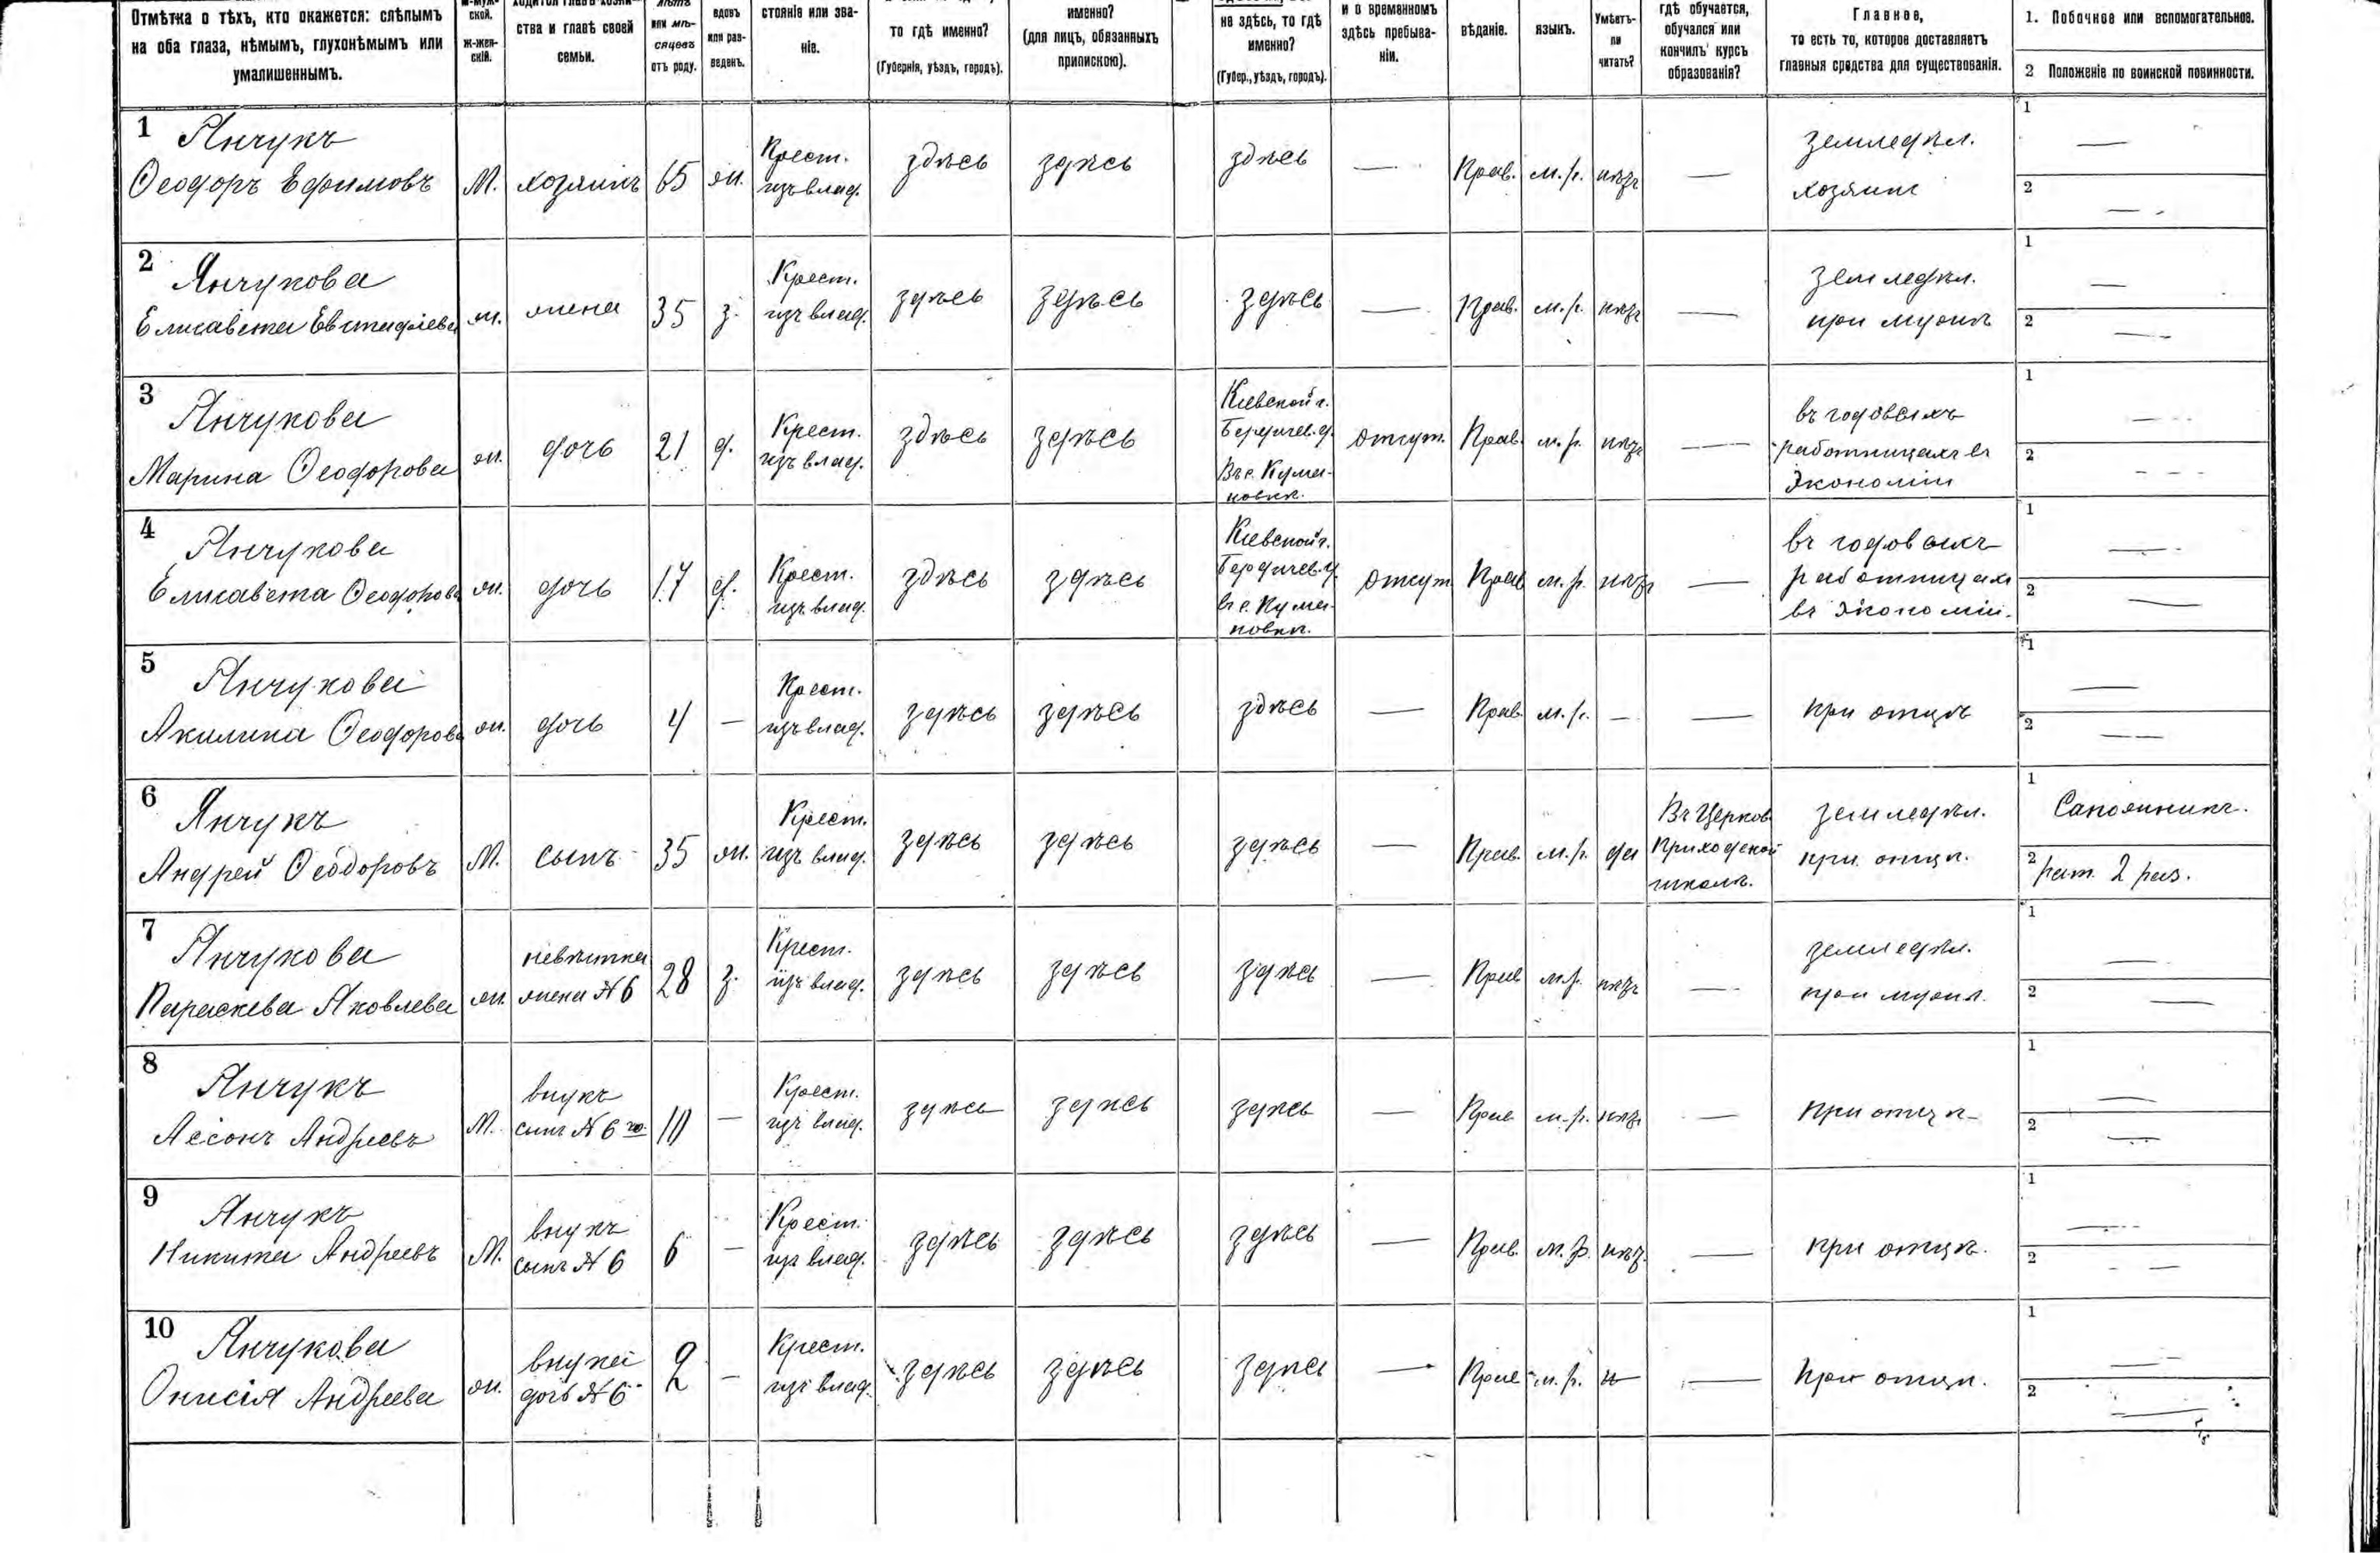 Отмѣтка о тѣхъ, кто окажется: слѣпымъ
на оба глаза, нѣмымъ, глухонѣмымъ или
умалишеннымъ.
ской.
ж-жен-
скій.
ства и главѣ своей
семьи.
или мѣ-
сяцевъ
отъ роду.
вдовъ
или раз-
веденъ.
стояніе или зва-
ніе.
то гдѣ именно?
(Губернія, уѣздъ, городъ).
именно?
(для лицъ, обязанныхъ
припискою).
не здѣсь, то гдѣ
именно?
(Губер., уѣздъ, городъ).
и о временномъ
здѣсь пребыва-
ніи.
вѣданіе.
языкъ.
Умѣетъ-
ли
читать?
гдѣ обучается,
обучался или
кончилъ курсъ
образованія?
Главное,
то есть то, которое доставляетъ
главныя средства для существованія.
1. Побочное или вспомогательное.
2 Положеніе по воинской повинности.
1 Янчукъ
Ѳеодоръ Ефимовъ
М. хозяинъ 65 ж.
Крест.
изъ влад.
здѣсь здѣсь здѣсь — Прав. м.р. нѣтъ —
земледѣл.
хозяинъ
1 —
2 —
2 Янчукова
Елисавета Евстафіева
ж. жена 35 з.
Крест.
изъ влад.
здѣсь здѣсь здѣсь — Прав. м.р. нѣтъ —
земледѣл.
при мужѣ
1 —
2 —
3 Янчукова
Марина Ѳеодорова
ж. дочь 21 д.
Крест.
изъ влад.
здѣсь здѣсь
Кіевской г.
Бердичев. у.
Въ с. Кума-
новкѣ.
отсут. Прав. м.р. нѣтъ —
въ годовыхъ
работницахъ въ
Экономіи
1 —
2 —
4 Янчукова
Елисавета Ѳеодорова
ж. дочь 17 д.
Крест.
изъ влад.
здѣсь здѣсь
Кіевской г.
Бердичев. у.
въ с. Кума-
новкѣ.
отсут. Прав. м.р. нѣтъ —
въ годовыхъ
работницахъ
въ Экономіи.
1 —
2 —
5 Янчукова
Акилина Ѳеодорова
ж. дочь 4 —
Крест.
изъ влад.
здѣсь здѣсь здѣсь — Прав. м.р. — — при отцѣ
1 —
2 —
6 Янчукъ
Андрей Ѳеодоровъ
М. сынъ 35 ж.
Крест.
изъ влад.
здѣсь здѣсь здѣсь — Прав. м.р. да
Въ Церков.
Приходской
школѣ.
земледѣл.
при отцѣ.
1 Сапожникъ.
2 рат. 2 раз.
7 Янчукова
Параскева Яковлева
ж.
невѣстка
жена №6
28 з.
Крест.
изъ влад.
здѣсь здѣсь здѣсь — Прав. м.р. нѣтъ —
земледѣл.
при мужѣ.
1 —
2 —
8 Янчукъ
Андреевъ
М.
внукъ
сынъ №6 го
10 —
Крест.
изъ влад.
здѣсь здѣсь здѣсь — Прав. м.р. нѣтъ — при отцѣ
1 —
2 —
9 Янчукъ
Никита Андреевъ
М.
внукъ
сынъ №6
6 —
Крест.
изъ влад.
здѣсь здѣсь здѣсь — Прав. м.р. нѣтъ. — при отцѣ.
1 —
2 —
10 Янчукова
Онисія Андреева
ж.
внука
дочь №6
2 —
Крест.
изъ влад.
здѣсь здѣсь здѣсь — Прав. м.р. — при отцѣ.
1 —
2 —